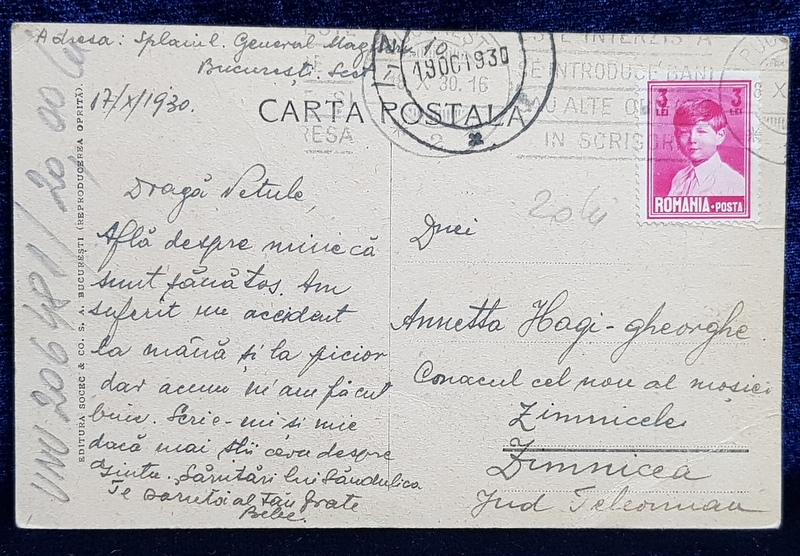 Adresa: Splaiul. General Magheru 10
București. Sect
17/X/1930.
CARTA POSTALA
19 OC 1930
18 X 30. 16
ESTE INTERZIS A
SE INTRODUCE BANI
SAU ALTE
IN SCRISORI
RESA
2
3 LEI
3 LEI
ROMANIA·POSTA
20 lei
Dragă Petule,
Află despre mine că
sunt sănătos. Am
suferit un accident
la mână și la picior
dar acum mi am făcut
bine. Scrie-mi si mie
dacă mai știi ceva despre
Sărutări lui Săndulica
Te sarutoi al tău frate
Bebe.
Dnei
Annetta Hagi-gheorghe
Conacul cel nou al moșiei
Zimnicele
Zimnicea
Jud Teleorman
EDITURA SOCEC & CO. S. A. BUCUREȘTI (REPRODUCEREA OPRITĂ).
UNU 206481 / 20,00 lei